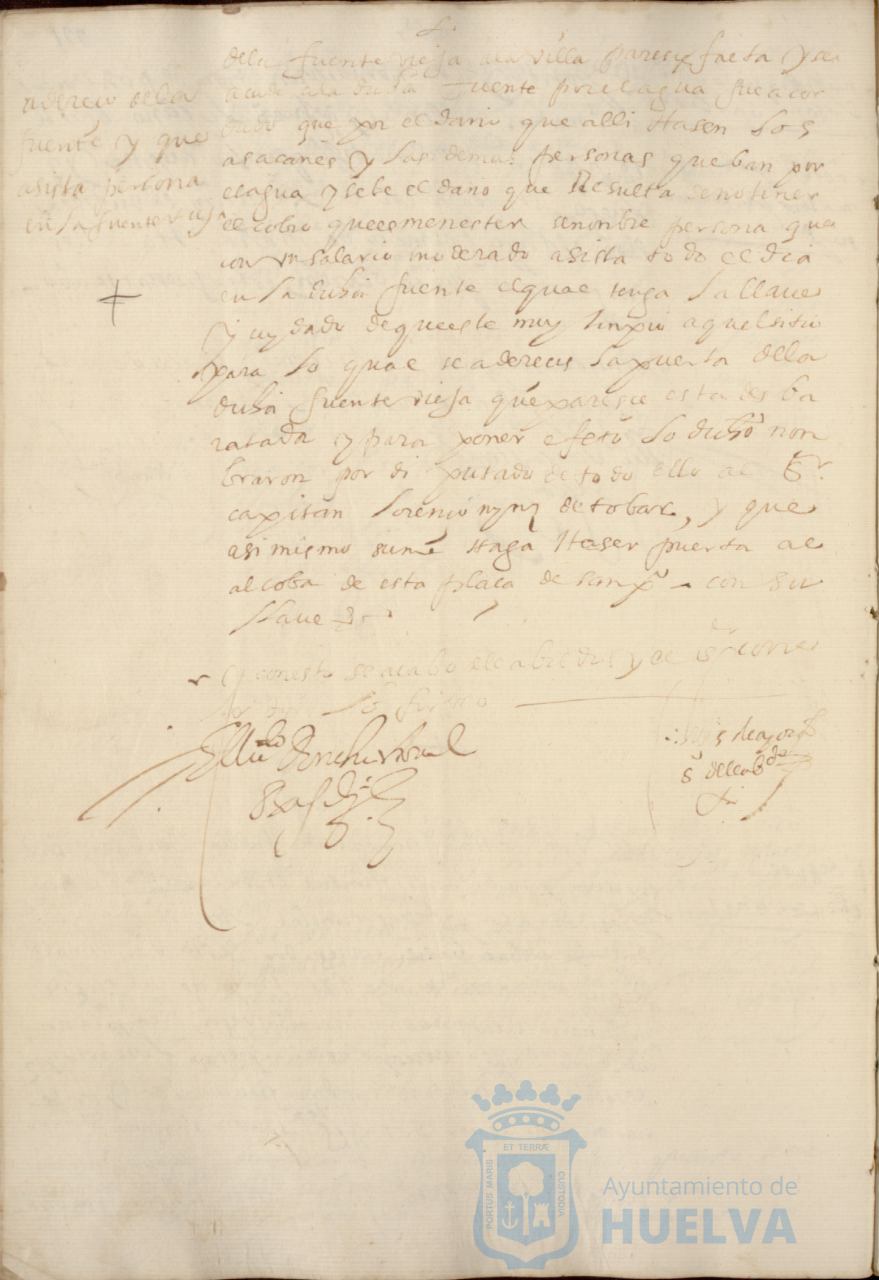 aderecio de la
fuente y que
asista persona
en la fuente vieja
de la fuente vieja a la villa parese falta y se
acude a la dicha fuente por el agua fue acor
dado que por el daño que alli hasen los
asacanes y las demas personas que ban por
el agua y sebe el daño que Resulta de no tener
el cobro que es menester se nonbre persona que
con un salario moderado asista todo el dia
en la dicha fuente el qual tenga la llave
y cuydado de que este muy linpio aquel sitio
para lo qual se aderece la puerta de la
dicha fuente vieja que parese esta des ba
ratada y para poner efeto lo dicho non
braron por diputado de todo ello al Sr.
capitan Lorencio de tobar, y que
asimismo haga Haser puerta al
alcoba de esta plaça de san po con su
llave
y con esto se acabo el cabildo y el sr corre
lo firmo
El licdo Don
s del cabdo
ET TERRÆ
PORTUS MARIS
CUSTODIA
Ayuntamiento de
HUELVA